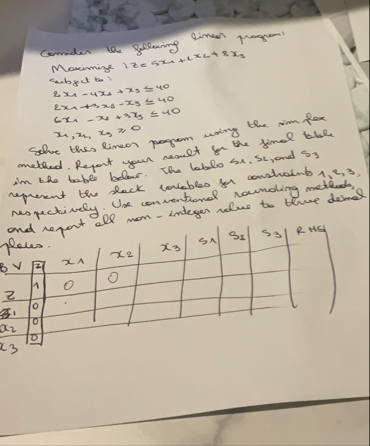 Consider the following linear program:
Maximize Z = 5x1 + 2x2 + 8x3
Subject to:
2x1 - 4x2 + x3 ≤ 40
2x1 + 3x2 - x3 ≤ 40
6x1 - x2 + 3x3 ≤ 40
x1, x2, x3 ≥ 0
Solve this linear program using the simplex
method. Report your result for the final table
in the table below. The labels S1, S2, and S3
represent the slack variables for constraints 1, 2, 3,
respectively. Use conventional rounding methods,
and report all non-integer value to three decimal
places.
BV Z x1 x2 x3 S1 S2 S3 RHS
Z 1 0 0
S1 0
x2 0
x3 0